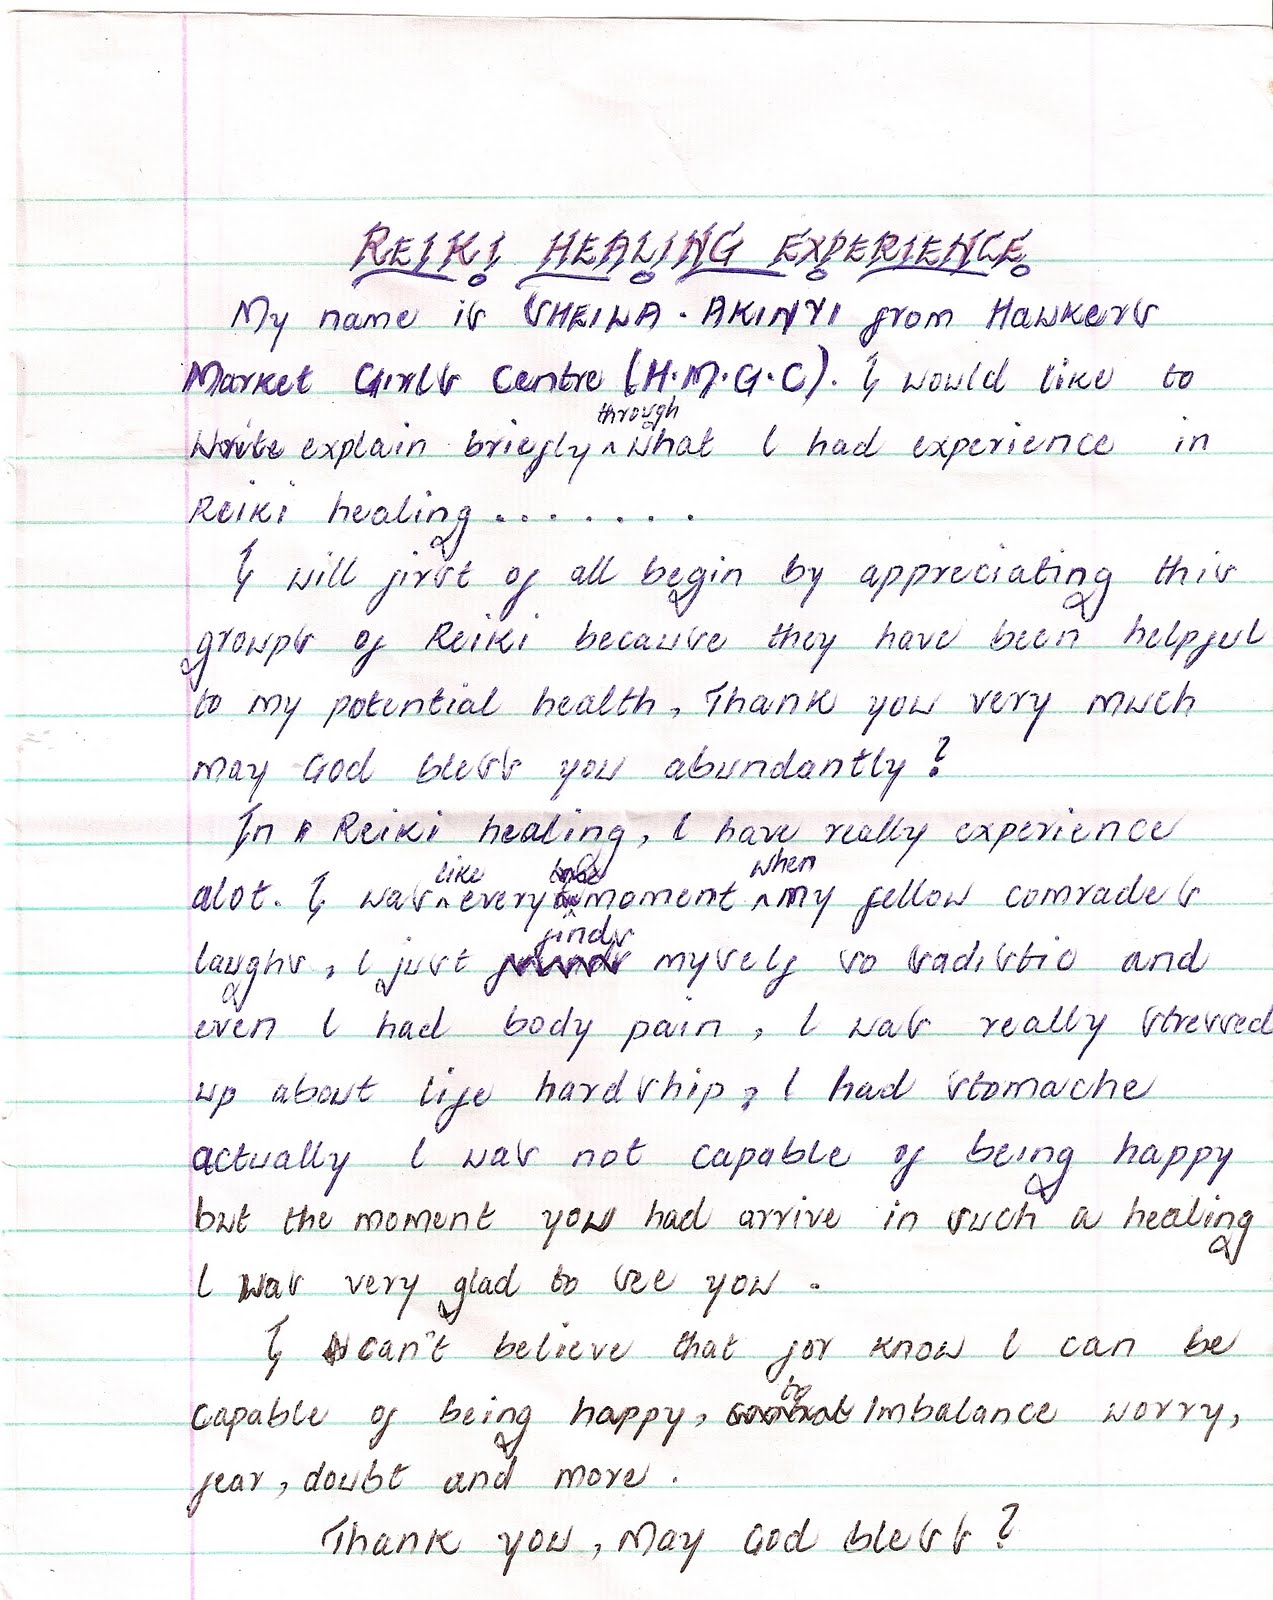 REIKI HEALING EXPERIENCE
My name is SHEILA . AKINYI from Hawkers
Market Girls Centre (H.M.G.C). I would like to
Write explain briefly through what I had experience in
Reiki healing........
I will first of all begin by appreciating this
groups of Reiki because they have been helpful
to my potential health, Thank you very much
may God bless you abundantly?
In Reiki healing, I have really experience
alot. I was like every moment when my fellow comrades
laughs, I just finds myself so sadistic and
even I had body pain, I was really stressed
up about life hardship, I had stomache
actually I was not capable of being happy
but the moment you had arrive in such a healing
I was very glad to see you.
I can't believe that for know I can be
capable of being happy, to Imbalance worry,
fear, doubt and more.
Thank you, May God bless?